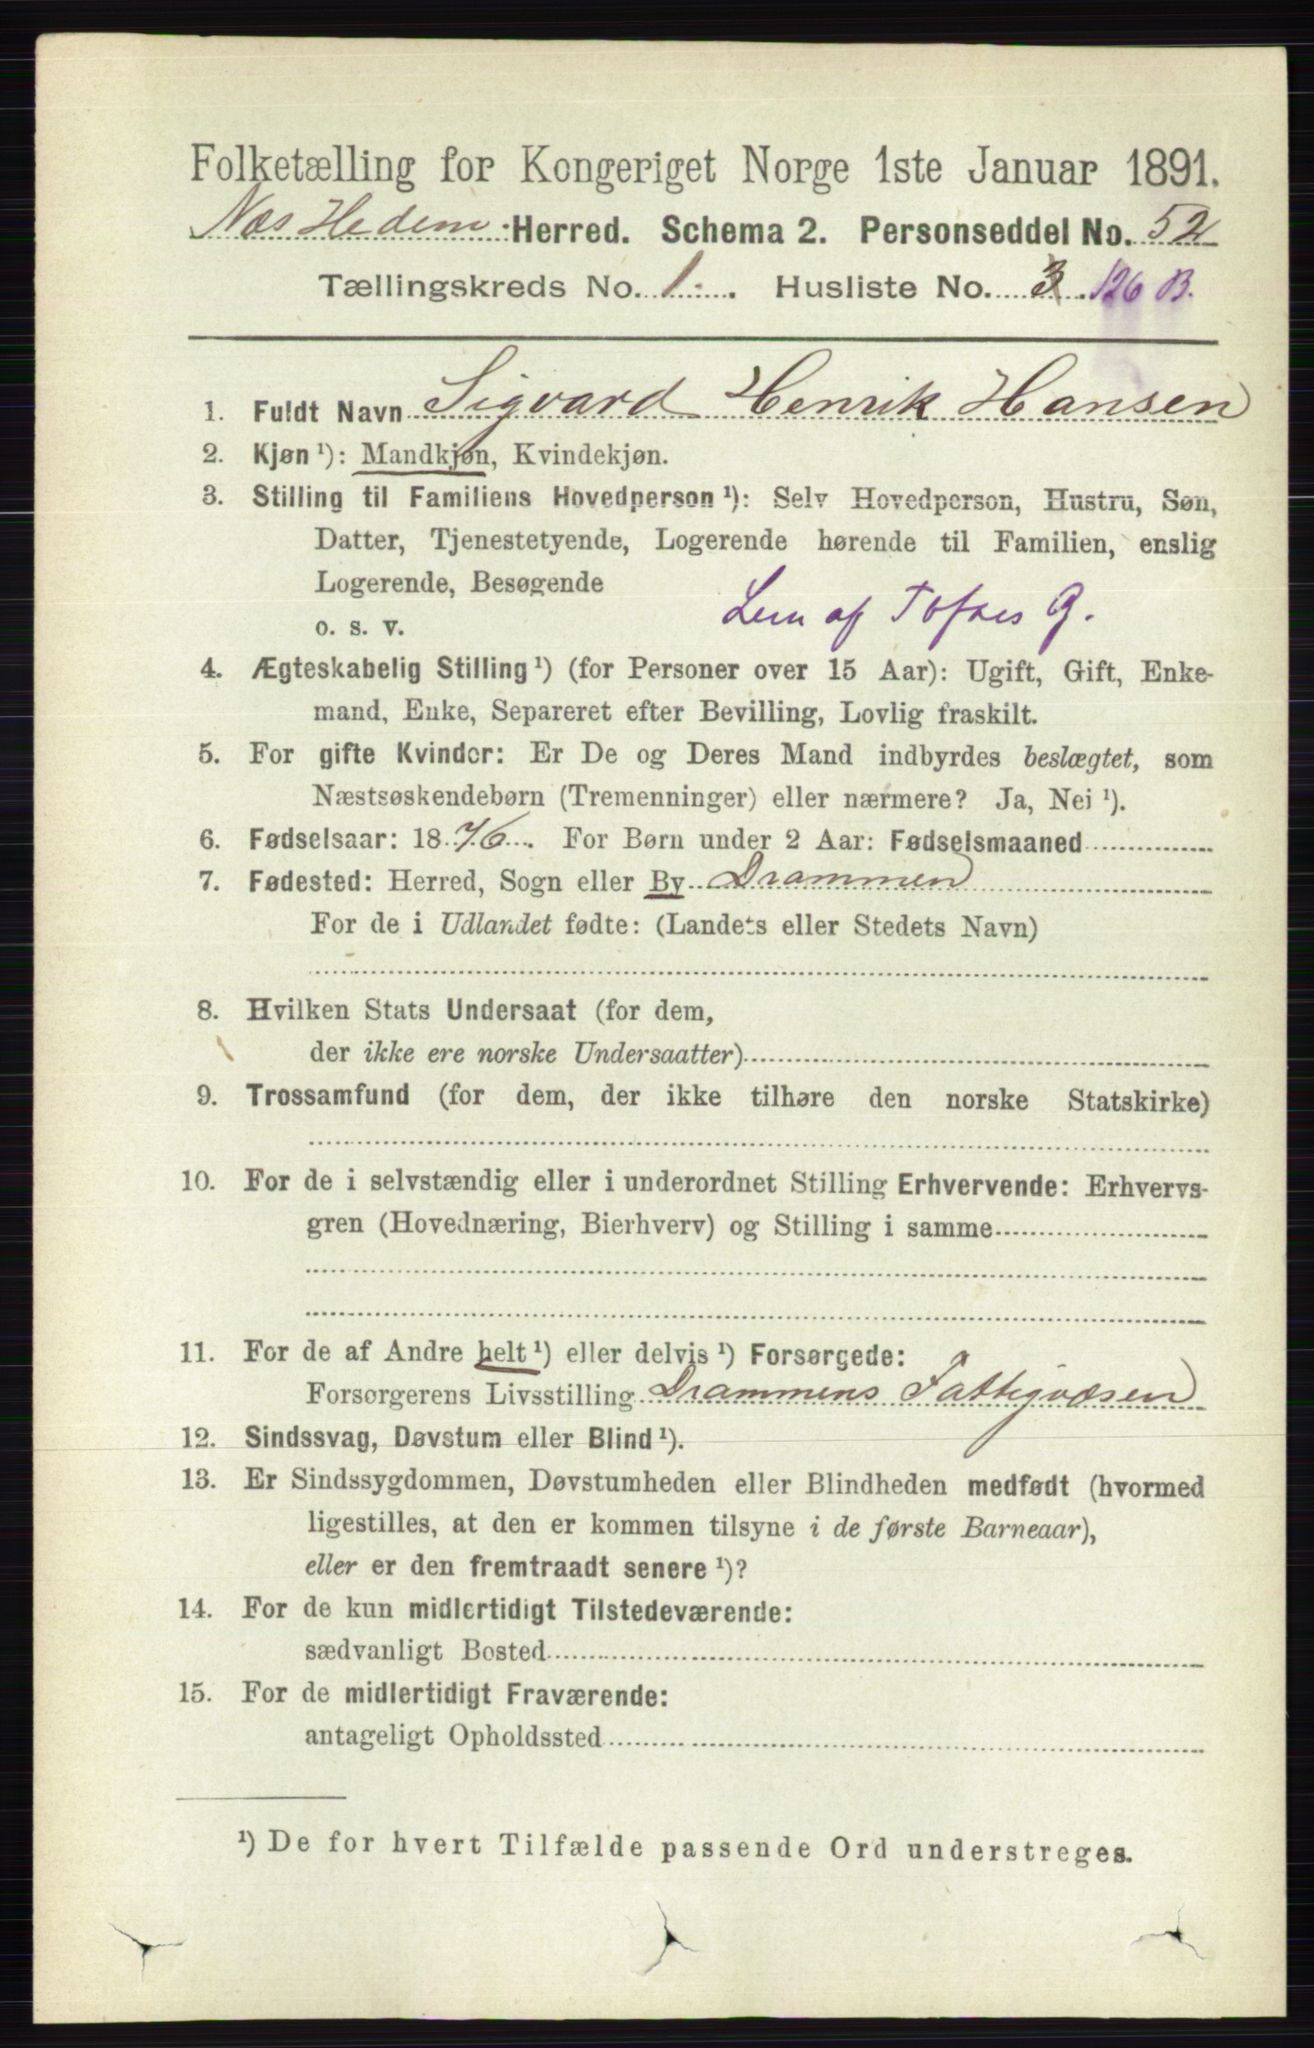 Folketælling for Kongeriget Norge 1ste Januar 1891.
Næs Hedem: Herred. Schema 2. Personseddel No. 52
Tællingskreds No. 1. Husliste No. 3. 126 B.
1. Fuldt Navn Sigvard Henrik Hansen
2. Kjøn ¹): Mandkjøn, Kvindekjøn.
3. Stilling til Familiens Hovedperson ¹): Selv Hovedperson, Hustru, Søn,
Datter, Tjenestetyende, Logerende hørende til Familien, enslig
Logerende, Besøgende
o. s. v. Lem af Toftes G.
4. Ægteskabelig Stilling ¹) (for Personer over 15 Aar): Ugift, Gift, Enke-
mand, Enke, Separeret efter Bevilling, Lovlig fraskilt.
5. For gifte Kvinder: Er De og Deres Mand indbyrdes beslægtet, som
Næstsøskendebørn (Tremenninger) eller nærmere? Ja, Nei ¹).
6. Fødselsaar: 1876. For Børn under 2 Aar: Fødselsmaaned
7. Fødested: Herred, Sogn eller By Drammen
For de i Udlandet fødte: (Landets eller Stedets Navn)
8. Hvilken Stats Undersaat (for dem,
der ikke ere norske Undersaatter)
9. Trossamfund (for dem, der ikke tilhøre den norske Statskirke)
10. For de i selvstændig eller i underordnet Stilling Erhvervende: Erhvervs-
gren (Hovednæring, Bierhverv) og Stilling i samme
11. For de af Andre helt ¹) eller delvis ¹) Forsørgede:
Forsørgerens Livsstilling Drammens Fattigvæsen
12. Sindssvag, Døvstum eller Blind ¹).
13. Er Sindssygdommen, Døvstumheden eller Blindheden medfødt (hvormed
ligestilles, at den er kommen tilsyne i de første Barneaar),
eller er den fremtraadt senere ¹)?
14. For de kun midlertidigt Tilstedeværende:
sædvanligt Bosted
15. For de midlertidigt Fraværende:
antageligt Opholdssted
¹) De for hvert Tilfælde passende Ord understreges.